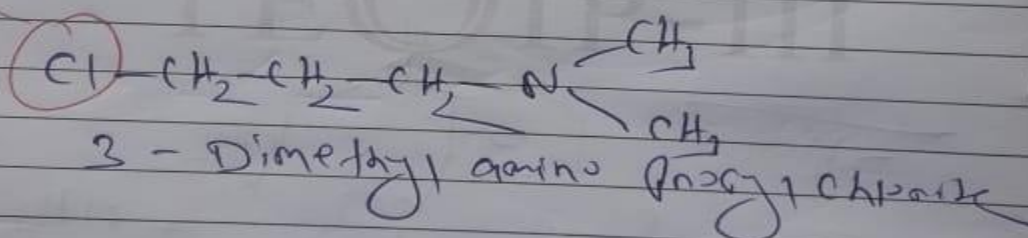 Cl-CH2-CH2-CH2-N
CH3
CH3
3-Dimethyl amino Propyl Chloride